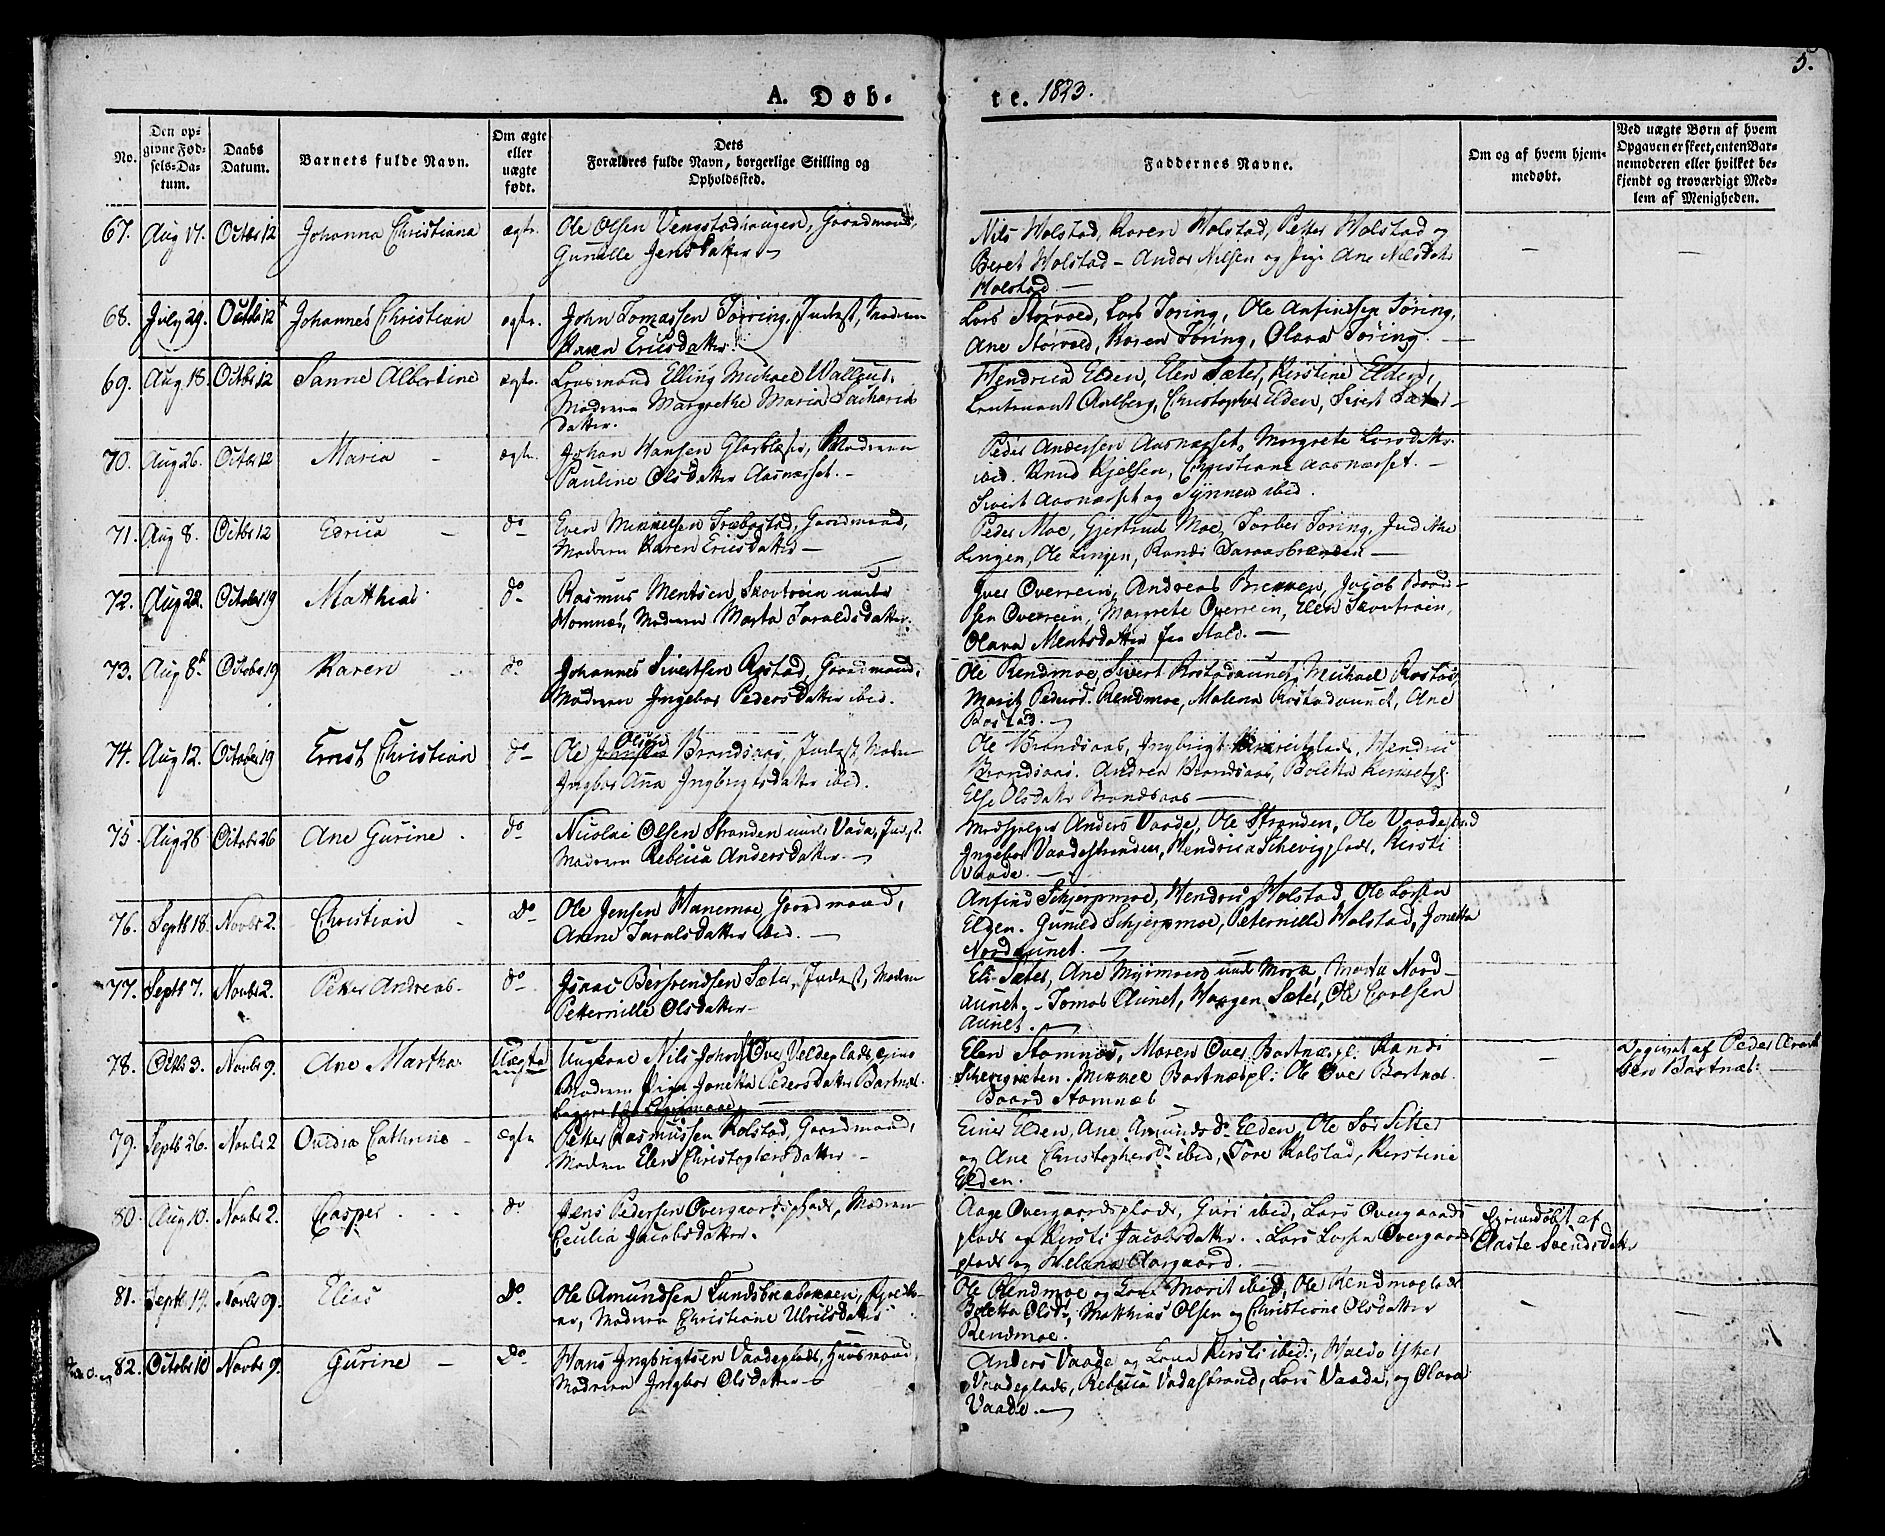 5.
A. Døb-
te. 1823.
No.
Den op-
givne Fød-
sels-Da-
tum.
Daabs
Datum.
Barnets fulde Navn.
Om ægte
eller
uægte
født.
Dets
Forældres fulde Navn, borgerlige Stilling og
Opholdssted.
Faddernes Navne.
Om og af hvem hjem-
medøbt.
Ved uægte Børn af hvem
Opgaven er skeet, enten Bar-
nemoderen eller hvilket be-
kjendt og troværdigt Med-
lem af Menigheden.
67. Aug 17. Octbr 12 Johanna Christiana ægte. Ole Olsen Vengstadhaugen, Gaardmand,
Gunille Jensdatter -
Nils Holstad, Karen Holstad, Petter Holstad og
Beret Holstad - Andor Nilsen og Pige Ane Nilsdatr
Holstad. -
68. July 29. Octbr 12 Johannes Christian ægte. John Tomassen Tørring, Inderst, Modren
Karen Ericsdatter.
Lars Størvold, Lars Tøring, Ole Anfindsen Tøring,
Ane Størvold, Karen Tøring, Olava Tøring. -
69. Aug 18. Octbr 12 Sanne Albertine ægte. Elling Michael
Modren Margrethe Maria Zacharias
datter.
Hendrica Elden, Elen Sæter, Kirstine Elden,
Leutenant Aalberg, Christopher Elden, Sivert Sæter -
70. Aug 26. Octbr 12 Maria - ægte. Johan Hansen Glasblæser, Modren
Pauline Olsdatter Aasnæsset. -
Peder Andersen Aasnæsset, Margrete Larsdatr.
ibid. Knud Kjelsen, Christiane Aasnæsset. -
Sivert Aasnæsset og Synnev ibid.
71. Aug 8. Octbr 12 Edrica - do Even Mikkelsen Træbostad, Gaardmand,
Modren Karen Ericsdatter -
Peder Moe, Gjertrud Moe, Torber Toring,
Lingen, Ole Lingen, Randi -
72. Aug 22. Octobr 19 Matthias do Rasmus Mentsen, Skovtrøin under
Homnes, Modren Marta Taraldsdatter.
Iver Overrein, Andreas Brekken, Jacob Baard-
sen Overrein, Margrete Overrein, Elen Skovtrøin,
Olava Mentsdatter fra Stold. -
73. Aug 8t Octobr 19 Karen do Johannes Sivertsen Rostad, Gaardmand,
Modren Ingebor Pedersdatter ibid.
Ole Rendmoe, Sivert Rostadaunet, Michael Rostad
Marit Pedersd. Rendmoe, Malena Rostadaunet, Ane
Rostad. -
74. Aug 12. Octobr 19 Ernst Christian do Ole Olsen Brandsaas, Inderst, Modren
Ingbor Ana Ingbrigtsdatter ibid.
Ole Brandsaas, Ingbrigt Hendric
Brandsaas. Andrea Brandsaas, Boletta
Else Olsdatr Brandsaas -
75 Aug 28 Octobr 26 Ane Gurine. do Nicolai Olsen Stranden under Vada, Inderst.
Modren Rebecca Andersdatter. -
Anders Vaade, Ole Stranden, Ole Vaadestrand
Ingebor Vaadestranden, Hendrica Schevigplads, Kirsti
Vaade. -
76. Septbr 18. Novbr 2. Christian - Do Ole Jensen Hanemoe, Gaardmand,
Anne Taralsdatter ibid. -
Anfind Schjerpmoe, Hendric Holstad, Ole Larsen
Elden. Gunild Schjerpmoe, Peternille Holstad, Jonetta
Nordaunet. -
77. Septbr 7. Novbr 2. Peter Andreas. do Isaac Bersvendsen Sæter, Inderst, Modren
Petternille Olsdatter -
Eli Sæter, Ane under Morte, Marta Nord-
aunet. Tomas Aunet, Haagen Sæter, Ole Evalsen
Aunet. -
78. Octbr 3. Novbr 9. Ane Martha Uægte Ungkarl Nils Johns. Over Veldeplads
Modren Pige Jonetta Pedersdatter Bartnæs.
Elen Stamnæs, Maren Over Bartnæspl. Randi
Schevigvten. Mikkel Bartnæspl: Ole Over Bartnæs.
Baard Stamnæs
- Angivet af Peder
Bartnæs: -
79. Septbr 26. Novbr 2 Ovedia Cathrine - ægte Petter Rasmussen Holstad, Gaardmand,
Modren Elen Christophersdatter -
Einer Elden, Ane Amundsdr Elden, Ole
og Ane Christophersdr ibid, Tore Holstad, Kirstine
Elden.
80. Aug 10. Novbr 2. Casper do Jens Pedersen Overgaardsplads, Modren
Cecilia Jacobsdatter.
Aage Overgaardsplads, Guri ibid, Lars Overgaards
plads og Kirsti Jacobsdatter. Lars Larsen Overgaards
plads og Helena Aargaard.
Hjemdøbt af
Aaste Svendsdatr
81. Septbr 14. Novbr 9. Elias Do Ole Amundsen
Modren Christiane Ulriksdatter
Ole Rendmoe og Kona Marit ibid, Ole Rendmoeplads
Beletta Olsdr, Matthias Olsen og Christiane Olsdatter
Rendmoe.
82. Octobr 10 Novbr 9. Gurine - Do Hans Ingbrigtsen Vaadeplads, Huusmand,
Modren Ingbor Olsdatter -
Anders Vaade og Kona Kirsti ibid:,
Vaadeplads, Rebecca Vadastrand, Lars Vaade, og Olava
Vaade. -